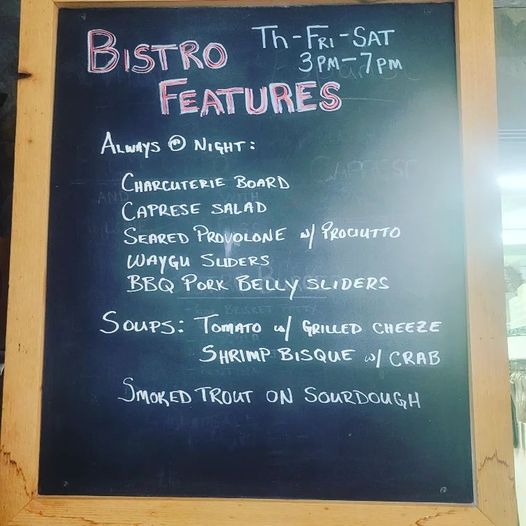 BISTRO Th-FRI-SAT
3PM-7PM
FEATURES
ALWAYS @ NIGHT:
CHARCUTERIE BOARD
CAPRESE SALAD
SEARED PROVOLONE w/ PROCIUTTO
WAYGU SLIDERS
BBQ PORK BELLY SLIDERS
SOUPS: TOMATO w/ GRILLED CHEEZE
SHRIMP BISQUE w/ CRAB
SMOKED TROUT ON SOURDOUGH